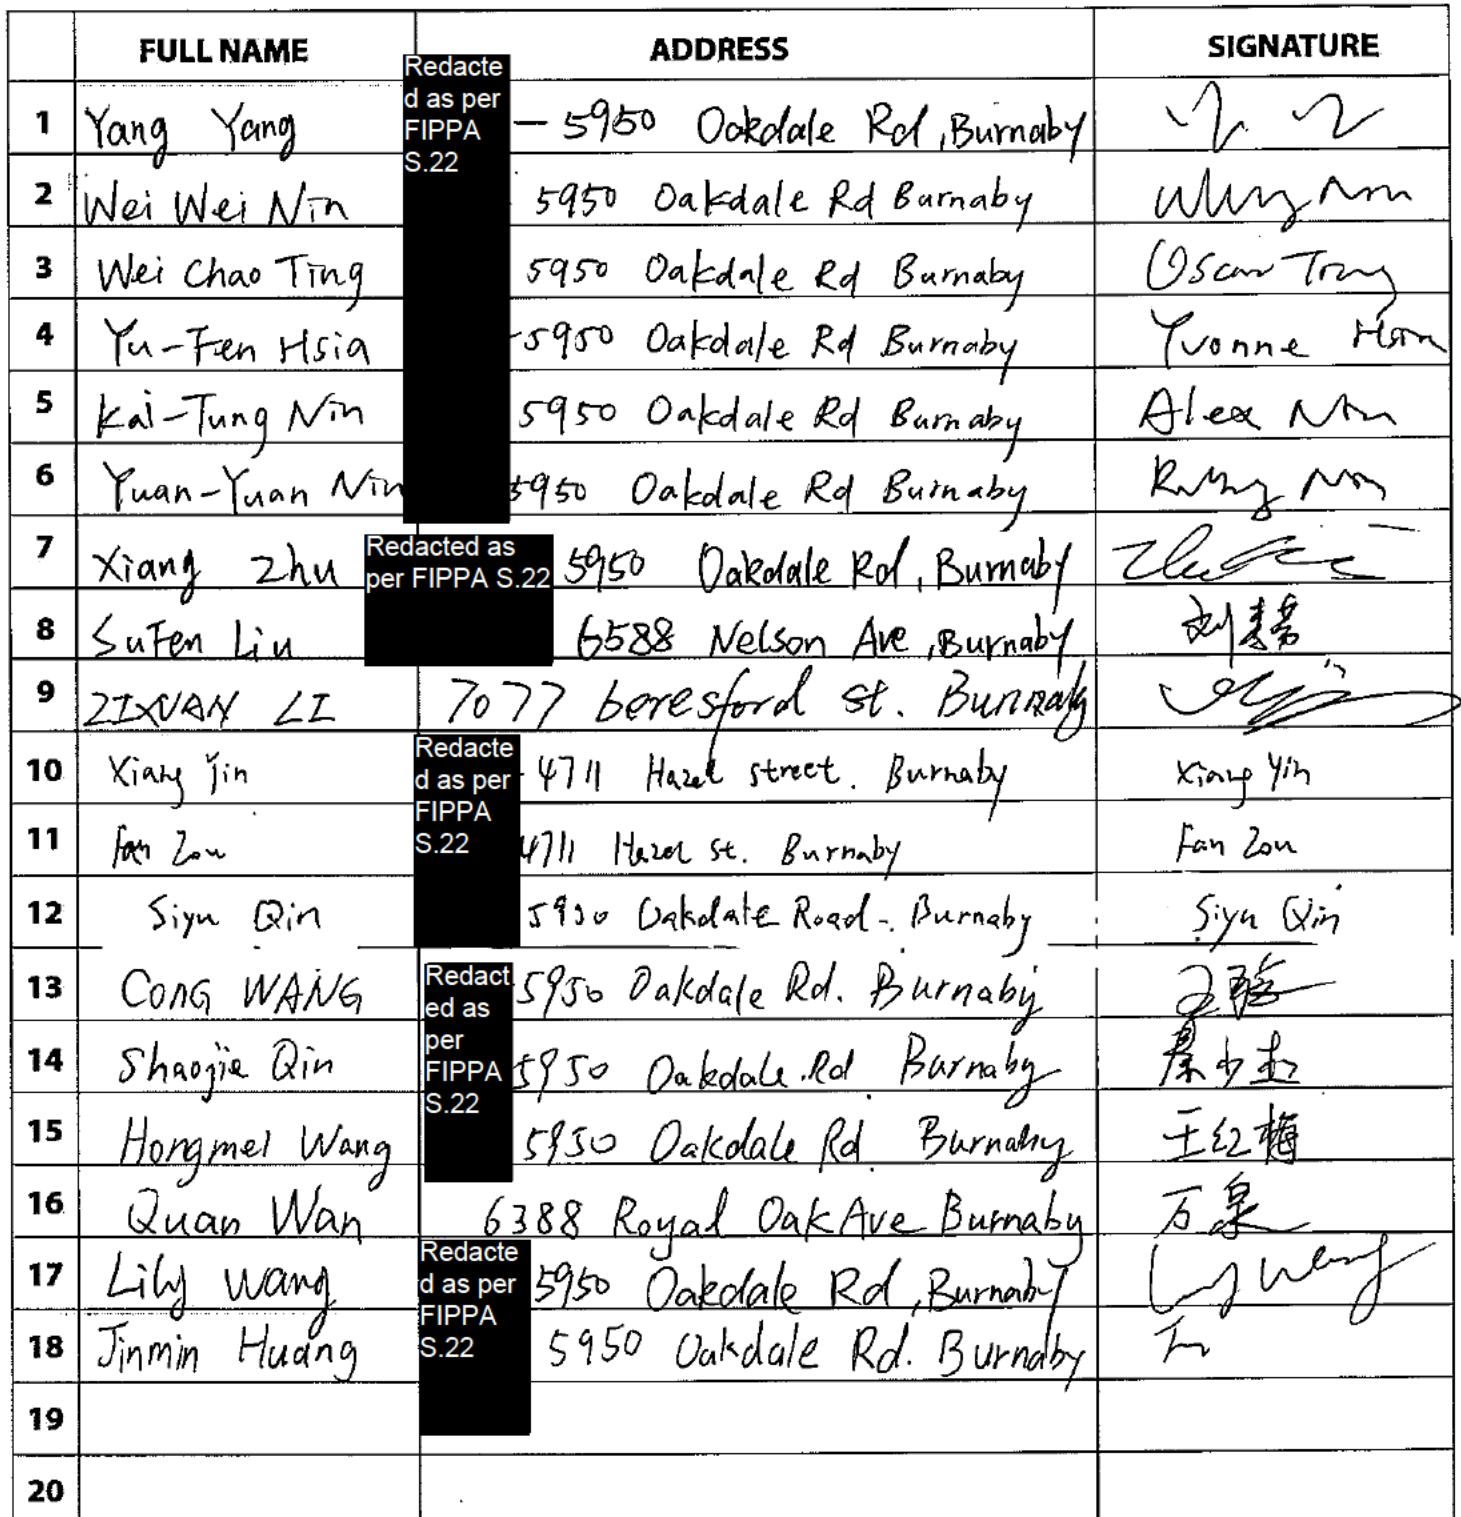 FULL NAME ADDRESS SIGNATURE
Redacte
d as per
FIPPA
S.22
1 Yang Yang — 5950 Oakdale Rd, Burnaby
2 Wei Wei Nin 5950 Oakdale Rd Burnaby
3 Wei Chao Ting 5950 Oakdale Rd Burnaby Oscar Ting
4 Yu-Fen Hsia -5950 Oakdale Rd Burnaby Yvonne Hsia
5 Kai-Tung Nin 5950 Oakdale Rd Burnaby Alex Nin
6 Yuan-Yuan Nin 5950 Oakdale Rd Burnaby Nin
Redacted as
per FIPPA S.22
7 Xiang Zhu 5950 Oakdale Rd, Burnaby
8 SuFen Liu 6588 Nelson Ave, Burnaby 刘素芬
9 ZIXUAN LI 7077 beresford st. Burnaby
Redacte
d as per
FIPPA
S.22
10 Xiang Yin - 4711 Hazel street. Burnaby Xiang Yin
11 Fan Zou 4711 Hazel st. Burnaby Fan Zou
12 Siyu Qin 5950 Oakdale Road - Burnaby Siyu Qin
Redact
ed as
per
FIPPA
S.22
13 CONG WANG 5950 Oakdale Rd. Burnaby
14 Shaojie Qin 5950 Oakdale Rd Burnaby 秦少杰
15 Hongmei Wang 5950 Oakdale Rd. Burnaby 王红梅
16 Quan Wan 6388 Royal Oak Ave Burnaby 万泉
Redacte
d as per
FIPPA
S.22
17 Lily Wang 5950 Oakdale Rd, Burnaby Lily Wang
18 Jinmin Huang 5950 Oakdale Rd. Burnaby
19
20